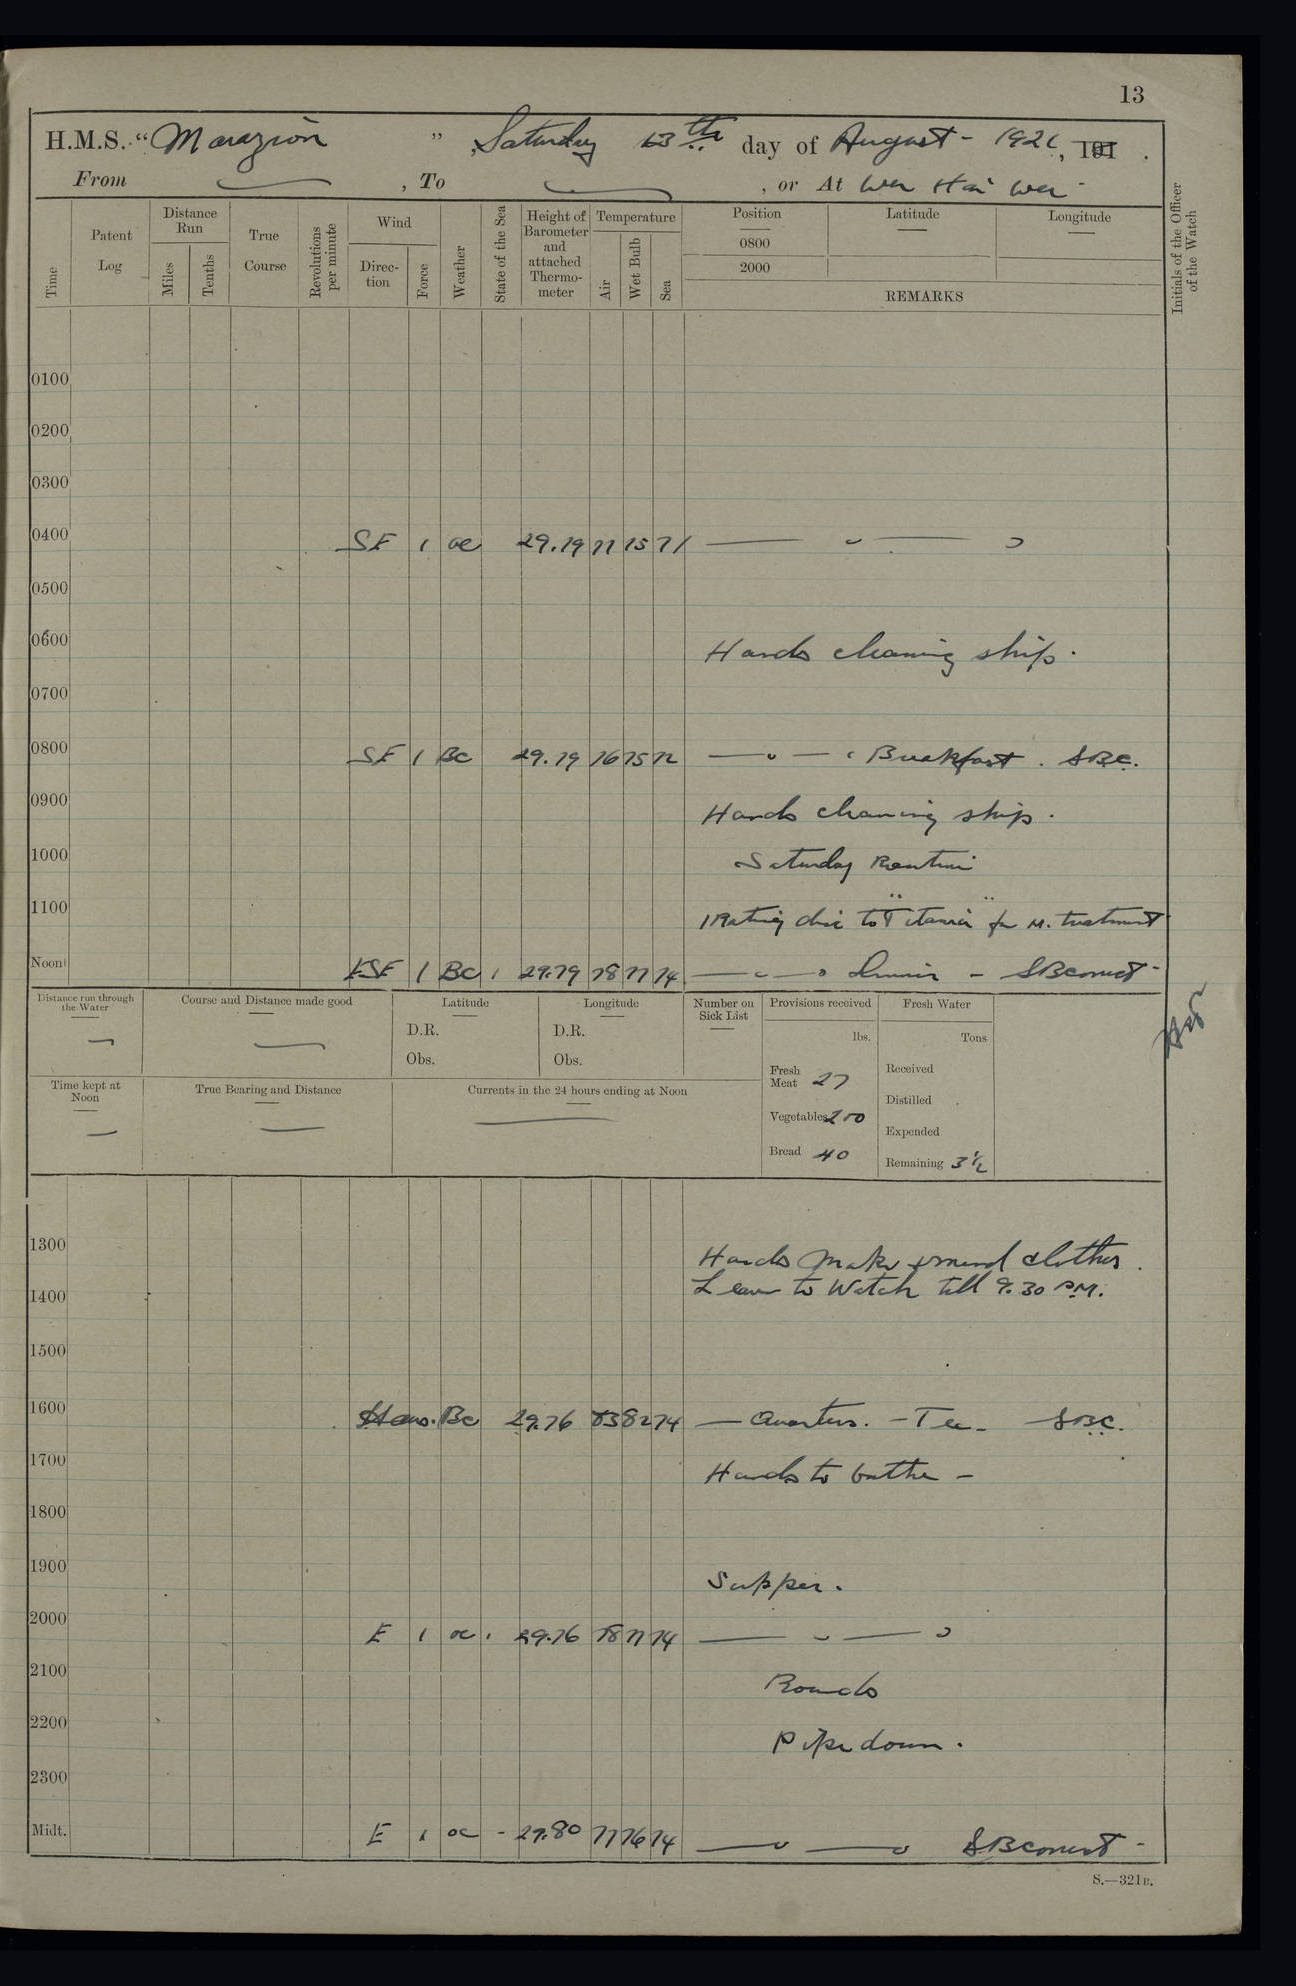 13
H.M.S. "Marazion", Saturday 13th day of August - 1921, 191.
From , To , or At Wei Hai Wei
Time Patent Log Distance Run Miles Tenths True Course Revolutions per minute Wind Direction Force Weather State of the Sea Height of Barometer and attached Thermometer Temperature Air Wet Bulb Sea Position Latitude Longitude
0800
2000
REMARKS
Initials of the Officer of the Watch
0100
0200
0300
0400 SE 1 oc 29.79 77 75 71
0500
0600 Hands cleaning ship.
0700
0800 SE 1 Bc 29.79 76 75 72 Breakfast. SBC.
0900 Hands cleaning ship.
1000 Saturday Routine
1100 1 Rating disc to "Titania" for M. treatment
Noon ESE 1 Bc 29.79 78 77 74 Dinner -
Distance run through the Water Course and Distance made good Latitude Longitude Number on Sick List Provisions received Fresh Water
D.R. D.R. lbs. Tons
Obs. Obs. Fresh Meat 27 Received
Time kept at Noon True Bearing and Distance Currents in the 24 hours ending at Noon
Vegetables 200 Distilled
Expended
Bread 40 Remaining 3 1/2
1300 Hands make & mend clothes.
Leave to Watch till 9.30 P.M.
1400
1500
1600 Bc 29.76 83 82 74 - Quarters. - Tea - SBC.
1700 Hands to bathe -
1800
1900 Supper.
2000 E 1 oc 29.76 78 77 74
2100 Rounds
2200 Pipe down.
2300
Midt. E 1 oc - 29.80 77 76 74
S.—321B.